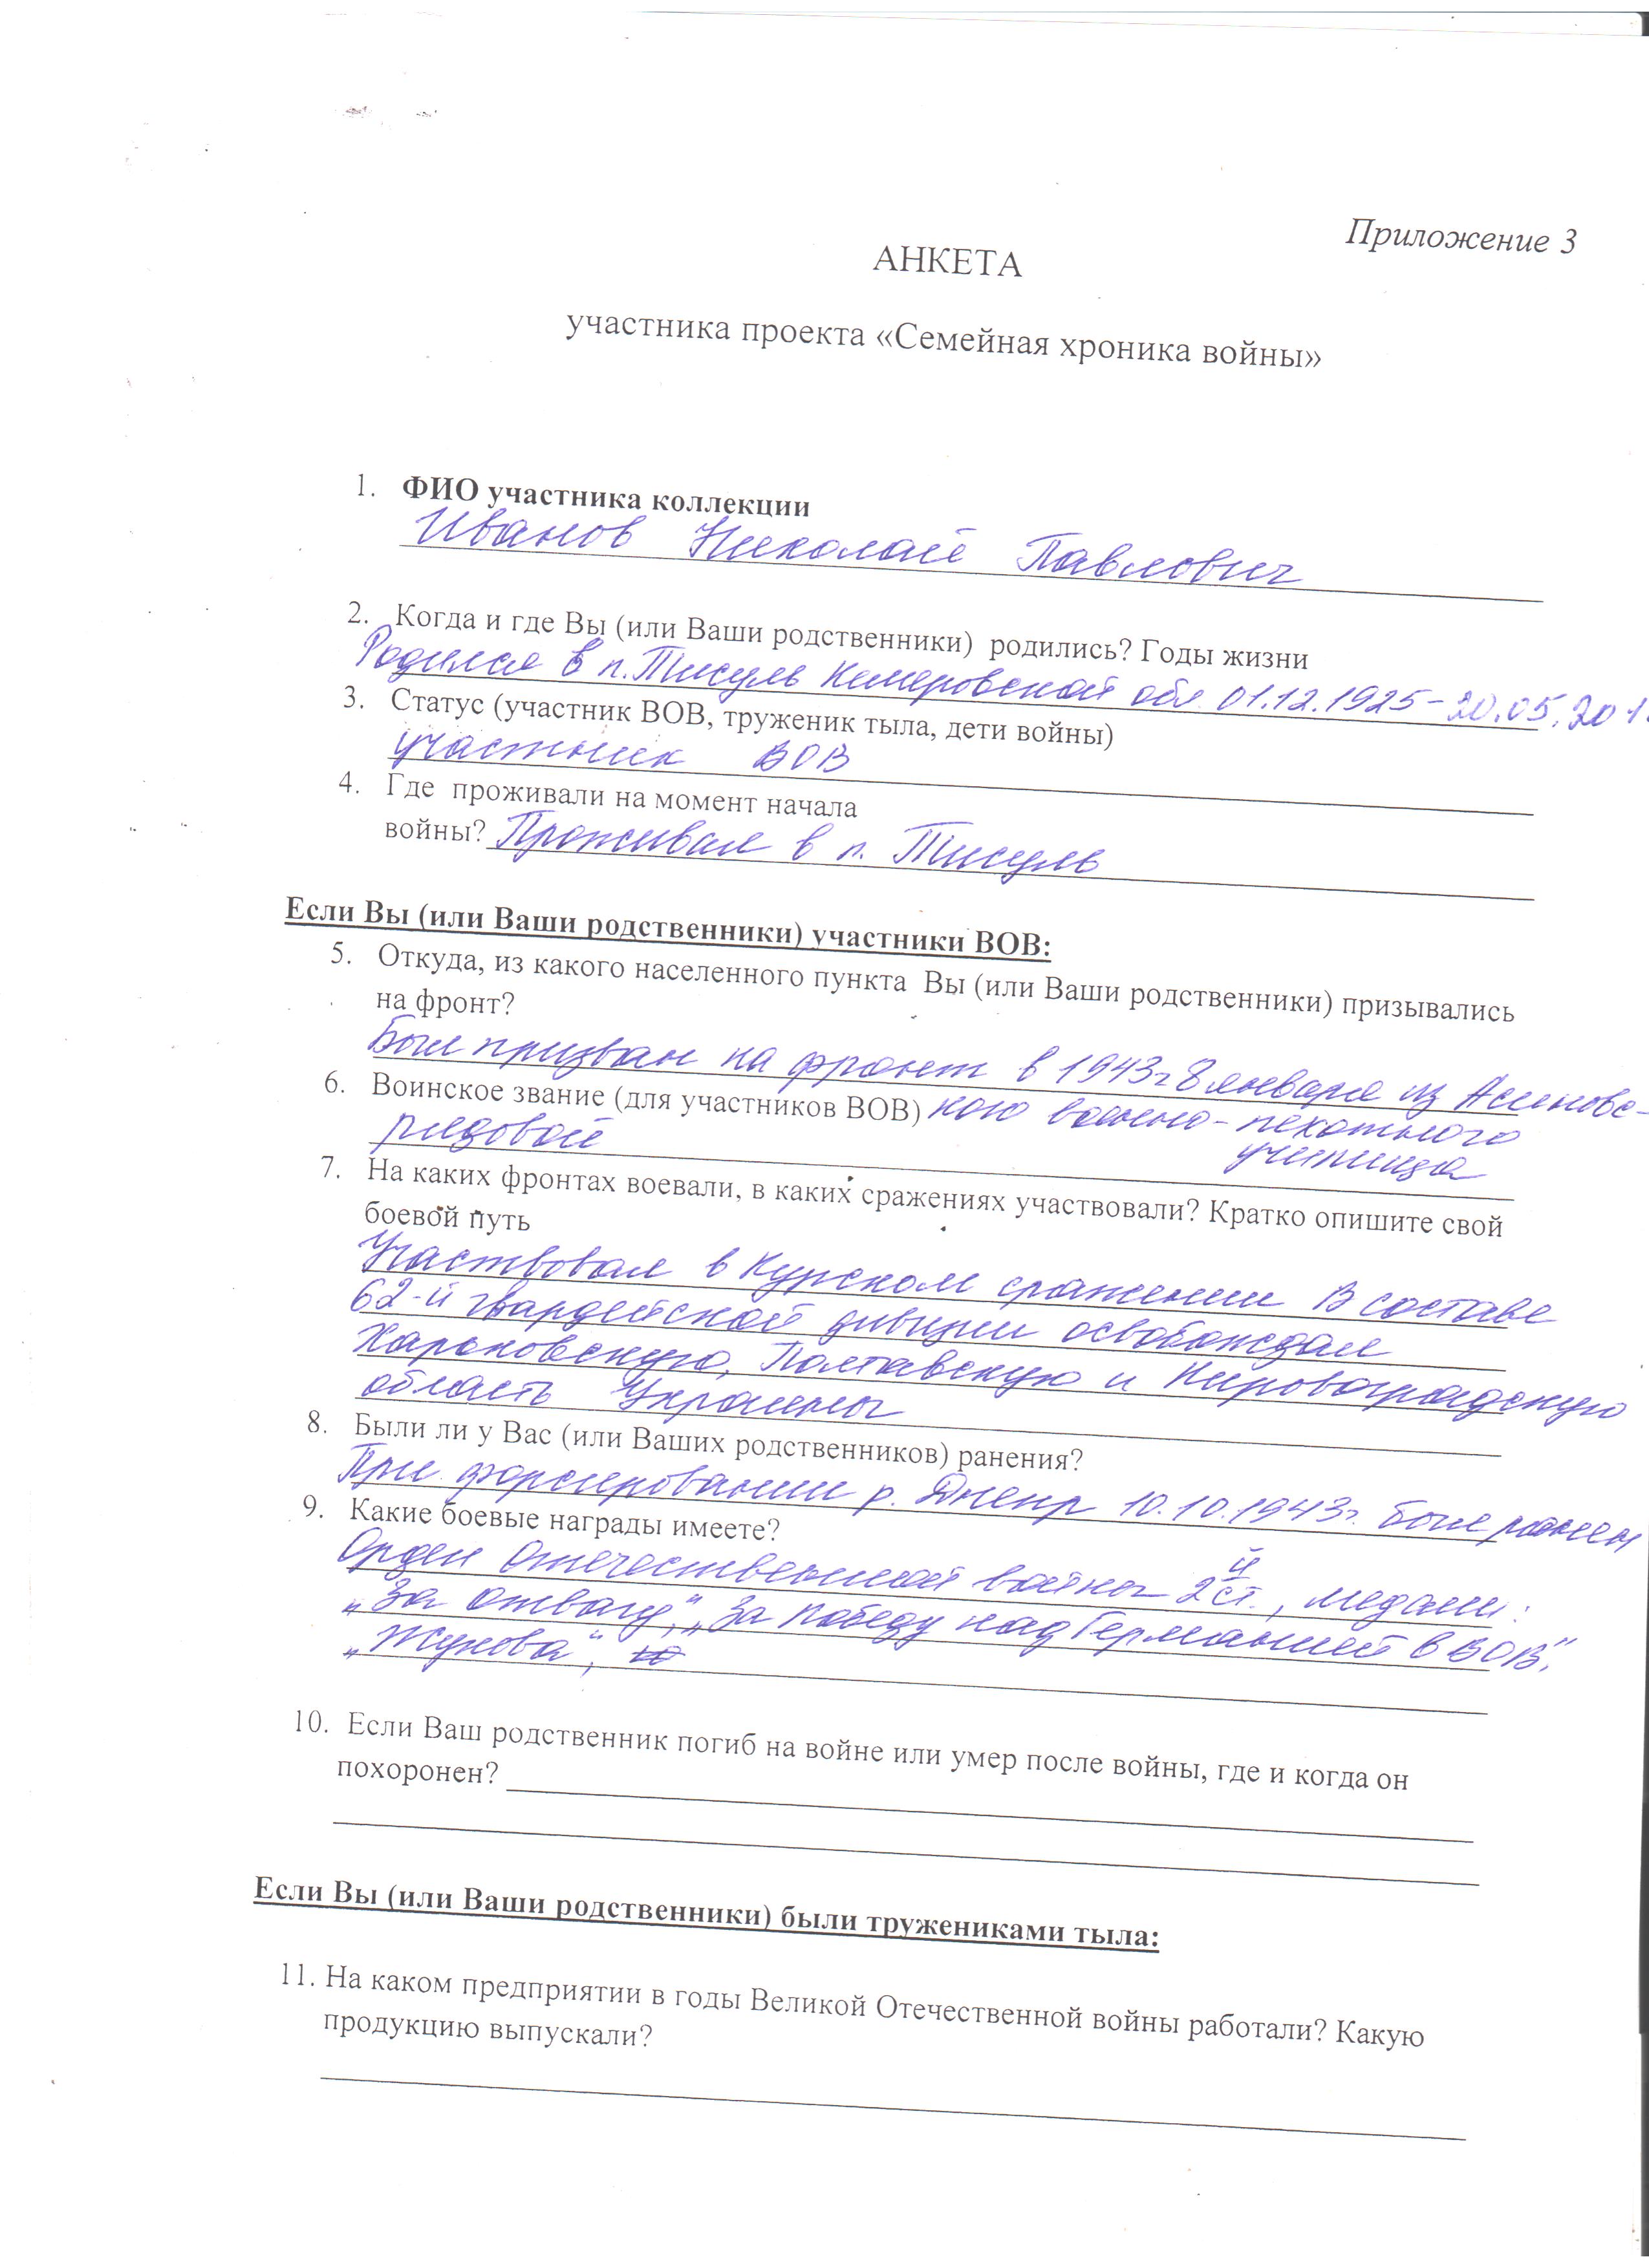 Приложение 3
АНКЕТА
участника проекта «Семейная хроника войны»
1. ФИО участника коллекции
Иванов Николай Павлович
2. Когда и где Вы (или Ваши родственники) родились? Годы жизни
Родился в п. Тисуль Кемеровской обл. 01.12.1925-20.05.201
3. Статус (участник ВОВ, труженик тыла, дети войны)
участник ВОВ
4. Где проживали на момент начала
войны? Проживал в п. Тисуль
Если Вы (или Ваши родственники) участники ВОВ:
5. Откуда, из какого населенного пункта Вы (или Ваши родственники) призывались
на фронт?
Был призван на фронт в 1943г 8 января из Асиновс-
6. Воинское звание (для участников ВОВ) кого военно-пехотного
училища
рядовой
7. На каких фронтах воевали, в каких сражениях участвовали? Кратко опишите свой
боевой путь
Участвовал в Курском сражении В составе
62-й гвардейской дивизии освобождал
Харьковскую, Полтавскую и Кировоградскую
область Украины
8. Были ли у Вас (или Ваших родственников) ранения?
При форсировании р. Днепр 10.10.1943г. был ранен
9. Какие боевые награды имеете?
Орден Отечественной войны 2й ст., медали:
„За отвагу", „За Победу над Германией в ВОВ".
„Жукова",
10. Если Ваш родственник погиб на войне или умер после войны, где и когда он
похоронен?
Если Вы (или Ваши родственники) были тружениками тыла:
11. На каком предприятии в годы Великой Отечественной войны работали? Какую
продукцию выпускали?